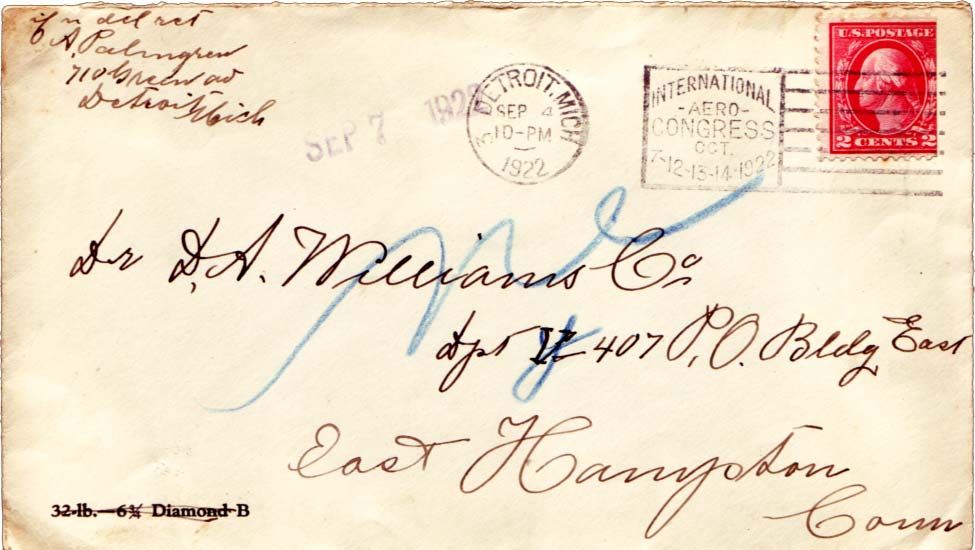 if n del ret
A. Palmgren
710 Green av
Detroit Mich
SEP 7 1922
DETROIT, MICH
3
SEP 4
10-PM
1922
INTERNATIONAL
-AERO-
CONGRESS
OCT.
7-12-13-14-1922
U.S. POSTAGE
2 CENTS 2
Dr D. A. Williams Co
Dpt 407 P. O. Bldg East
East Hampton
Conn
32-lb.—6¾ Diamond B